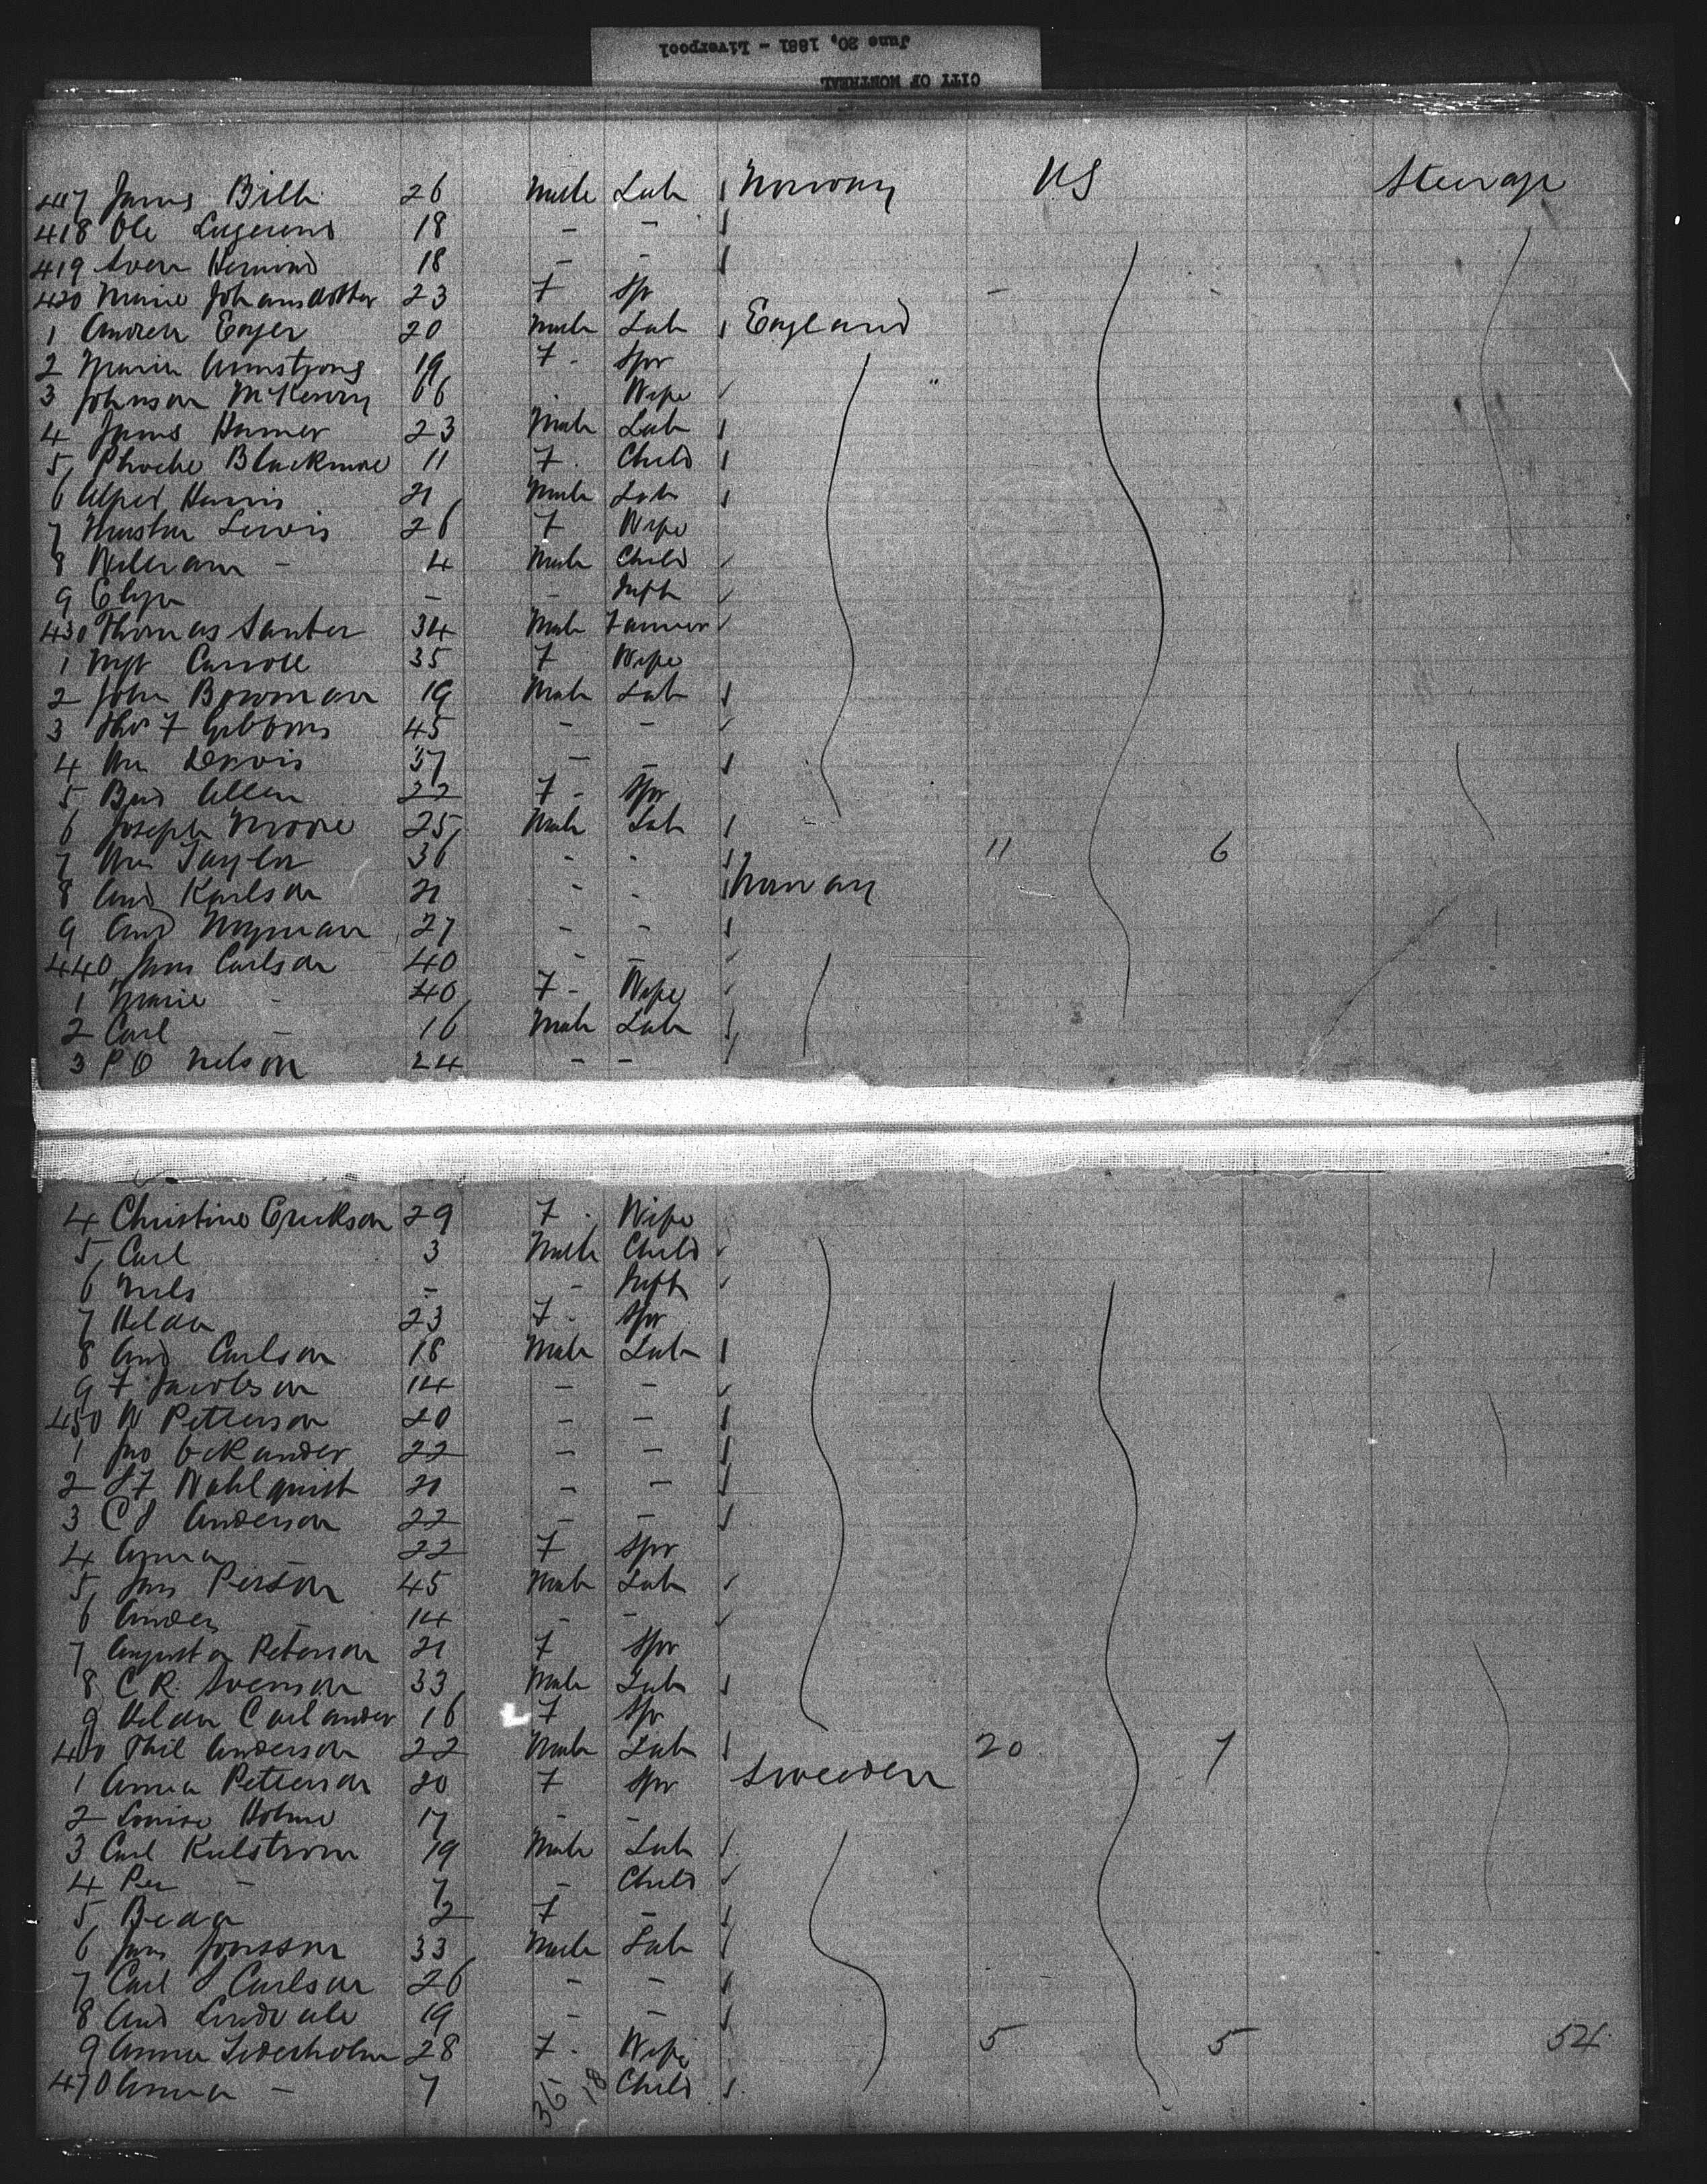 CITY OF MONTREAL
June 20, 1881 - Liverpool
417 James Bilk 26 Male Lab Norway US Steerage
418 Ole 18 - -
419 Sven 18 - -
420 Marie Johansdotter 23 F Sp
1 Andrew 20 Male Lab England
2 Maria Armstrong 19 F - Spr
3 Johnson McKenny 66 Wife
4 James Hamer 23 Male Lab
5 Phoebe Blackmore 11 F. Child
6 Alfred Harris 21 Male Lab
7 Lewis 26 F Wife
8 William - 4 Male Child
9 Eliza - - Inft
430 Thomas Santer 34 Male Farmer
1 Mgt Carroll 35 F Wife
2 John Bowman 19 Male Lab
3 Thos F Gibbons 45 - -
4 Wm 37 - -
5 Allen 22 F - Spr
6 Joseph Moore 25 Male Lab
7 Wm Taylor 36 - - 11 6
8 And Karlson 21 - - Norway
9 And Nyman 27 - -
440 Jans Carlson 40 - -
1 Marie - 40 F - Wife
2 Carl - 16 Male Lab
3 P O Nelson 24 - -
4 Christine Erickson 29 F. Wife
5 Carl 3 Male Child
6 Nils - - Inft
7 Hilda 23 F. Spr
8 And Carlson 18 Male Lab
9 F Jacobson 14 - -
450 N Petterson 20 - -
1 Jno Eckander 22 - -
2 Wahlquist 21 - -
3 Anderson 22 - -
4 Anna - 22 F Spr
5 Jans Person 45 Male Lab
6 Anders - 14 - -
7 Augusta Peterson 21 F Spr
8 C R. Svenson 33 Male Lab
9 Hilda Carlander 16 F Spr
460 Phil Anderson 22 Male Lab 20 7
1 Anna Petterson 20 F Spr Sweeden
2 Louise Holme 17 - -
3 Carl Kulstrom 19 Male Lab
4 Per - 7 - Child
5 Beda 2 F -
6 Jans Jonsson 33 Male Lab
7 Carl J Carlson 26 - -
8 And Lindvale 19 - -
9 Anna Sederholm 28 F. Wife 5 5 54
470 Anna - 7 Child
36 18